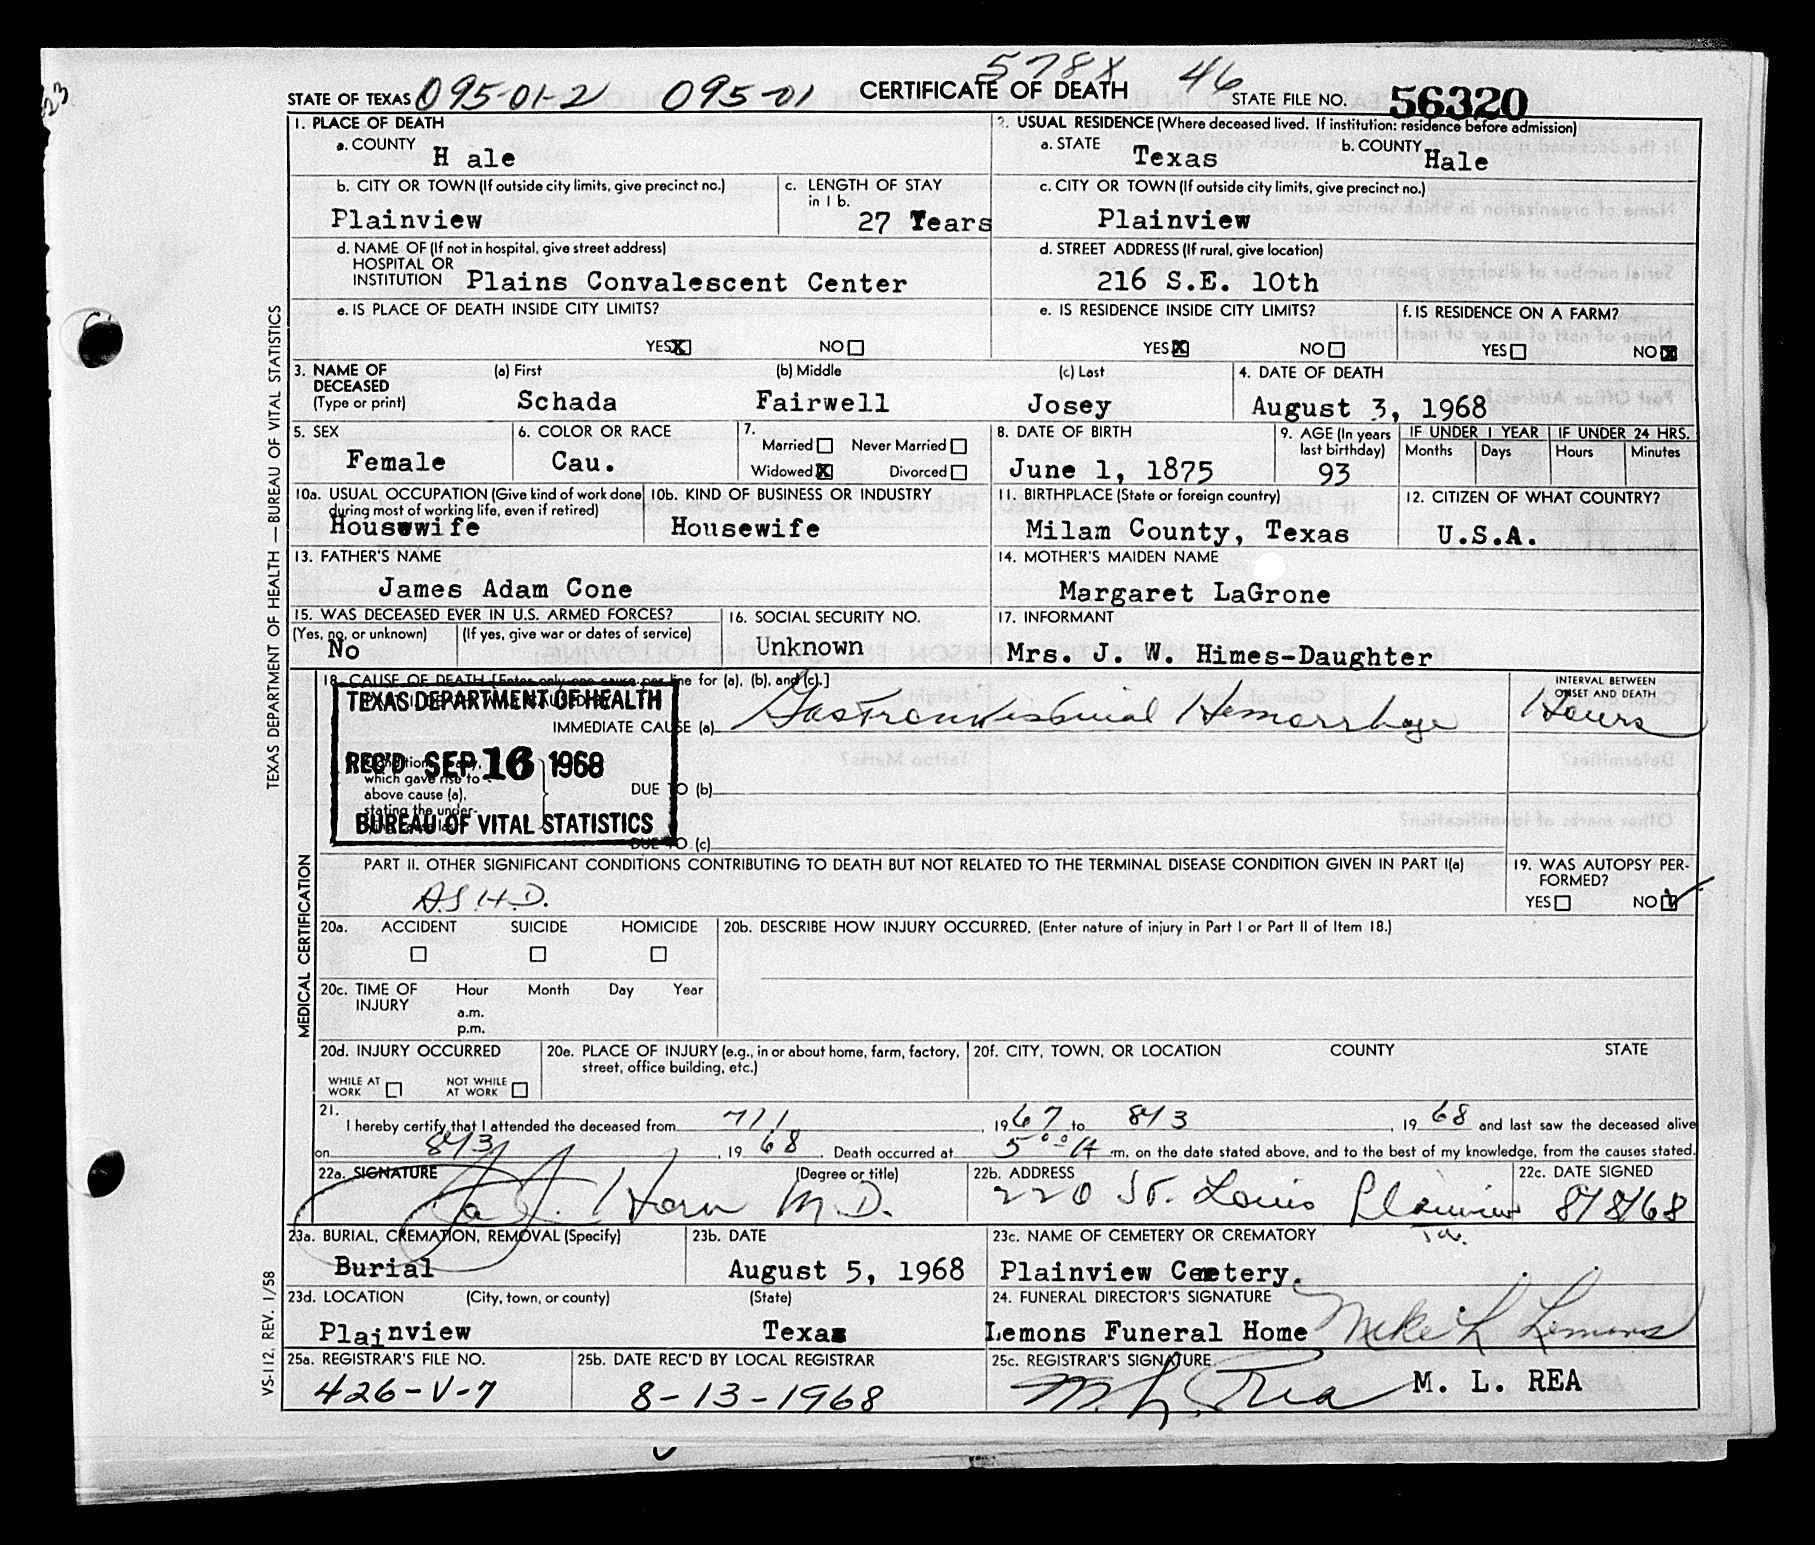 578X 46
STATE OF TEXAS 095-01-2 095-01 CERTIFICATE OF DEATH STATE FILE NO. 56320
1. PLACE OF DEATH
a. COUNTY H ale
2. USUAL RESIDENCE (Where deceased lived. If institution: residence before admission)
a. STATE Texas b. COUNTY Hale
b. CITY OR TOWN (If outside city limits, give precinct no.) Plainview
c. LENGTH OF STAY in 1 b. 27 Years
c. CITY OR TOWN (If outside city limits, give precinct no.) Plainview
d. NAME OF (If not in hospital, give street address)
HOSPITAL OR
INSTITUTION Plains Convalescent Center
d. STREET ADDRESS (If rural, give location)
216 S.E. 10th
e. IS PLACE OF DEATH INSIDE CITY LIMITS?
YES X NO
e. IS RESIDENCE INSIDE CITY LIMITS?
YES X NO
f. IS RESIDENCE ON A FARM?
YES NO X
3. NAME OF DECEASED (Type or print)
(a) First (b) Middle (c) Last
Schada Fairwell Josey
4. DATE OF DEATH
August 3, 1968
5. SEX
Female
6. COLOR OR RACE
Cau.
7. Married Never Married
Widowed X Divorced
8. DATE OF BIRTH
June 1, 1875
9. AGE (In years last birthday)
93
IF UNDER 1 YEAR IF UNDER 24 HRS.
Months Days Hours Minutes
10a. USUAL OCCUPATION (Give kind of work done during most of working life, even if retired)
Housewife
10b. KIND OF BUSINESS OR INDUSTRY
Housewife
11. BIRTHPLACE (State or foreign country)
Milam County, Texas
12. CITIZEN OF WHAT COUNTRY?
U.S.A.
13. FATHER'S NAME
James Adam Cone
14. MOTHER'S MAIDEN NAME
Margaret LaGrone
15. WAS DECEASED EVER IN U.S. ARMED FORCES?
(Yes, no, or unknown) (If yes, give war or dates of service)
No
16. SOCIAL SECURITY NO.
Unknown
17. INFORMANT
Mrs. J. W. Himes-Daughter
18. CAUSE OF DEATH [Enter only one cause per line for (a), (b), and (c).]
INTERVAL BETWEEN ONSET AND DEATH
TEXAS DEPARTMENT OF HEALTH
REC'D SEP 16 1968
BUREAU OF VITAL STATISTICS
IMMEDIATE CAUSE (a) Gastrointestinal Hemorrhage Hours
which gave rise to
above cause (a),
stating the under-
DUE TO (b)
DUE TO (c)
PART II. OTHER SIGNIFICANT CONDITIONS CONTRIBUTING TO DEATH BUT NOT RELATED TO THE TERMINAL DISEASE CONDITION GIVEN IN PART I(a)
A.S.H.D.
19. WAS AUTOPSY PERFORMED?
YES NO ✓
20a. ACCIDENT SUICIDE HOMICIDE
20b. DESCRIBE HOW INJURY OCCURRED. (Enter nature of injury in Part I or Part II of Item 18.)
20c. TIME OF INJURY Hour Month Day Year
a.m.
p.m.
20d. INJURY OCCURRED
WHILE AT WORK NOT WHILE AT WORK
20e. PLACE OF INJURY (e.g., in or about home, farm, factory, street, office building, etc.)
20f. CITY, TOWN, OR LOCATION COUNTY STATE
21.
I hereby certify that I attended the deceased from 7/1, 1967 to 8/3, 1968 and last saw the deceased alive
on 8/3, 1968. Death occurred at 5:00 A m. on the date stated above, and to the best of my knowledge, from the causes stated.
22a. SIGNATURE (Degree or title)
Horn M.D.
22b. ADDRESS
220 St. Louis Plainview
22c. DATE SIGNED
8/8/68
23a. BURIAL, CREMATION, REMOVAL (Specify)
Burial
23b. DATE
August 5, 1968
23c. NAME OF CEMETERY OR CREMATORY
Plainview Cemetery.
23d. LOCATION (City, town, or county) (State)
Plainview Texas
24. FUNERAL DIRECTOR'S SIGNATURE
Lemons Funeral Home Mike L Lemons
25a. REGISTRAR'S FILE NO.
426-V-7
25b. DATE REC'D BY LOCAL REGISTRAR
8-13-1968
25c. REGISTRAR'S SIGNATURE
M. L. Rea M. L. REA
TEXAS DEPARTMENT OF HEALTH — BUREAU OF VITAL STATISTICS
MEDICAL CERTIFICATION
VS-112, REV. 1/58